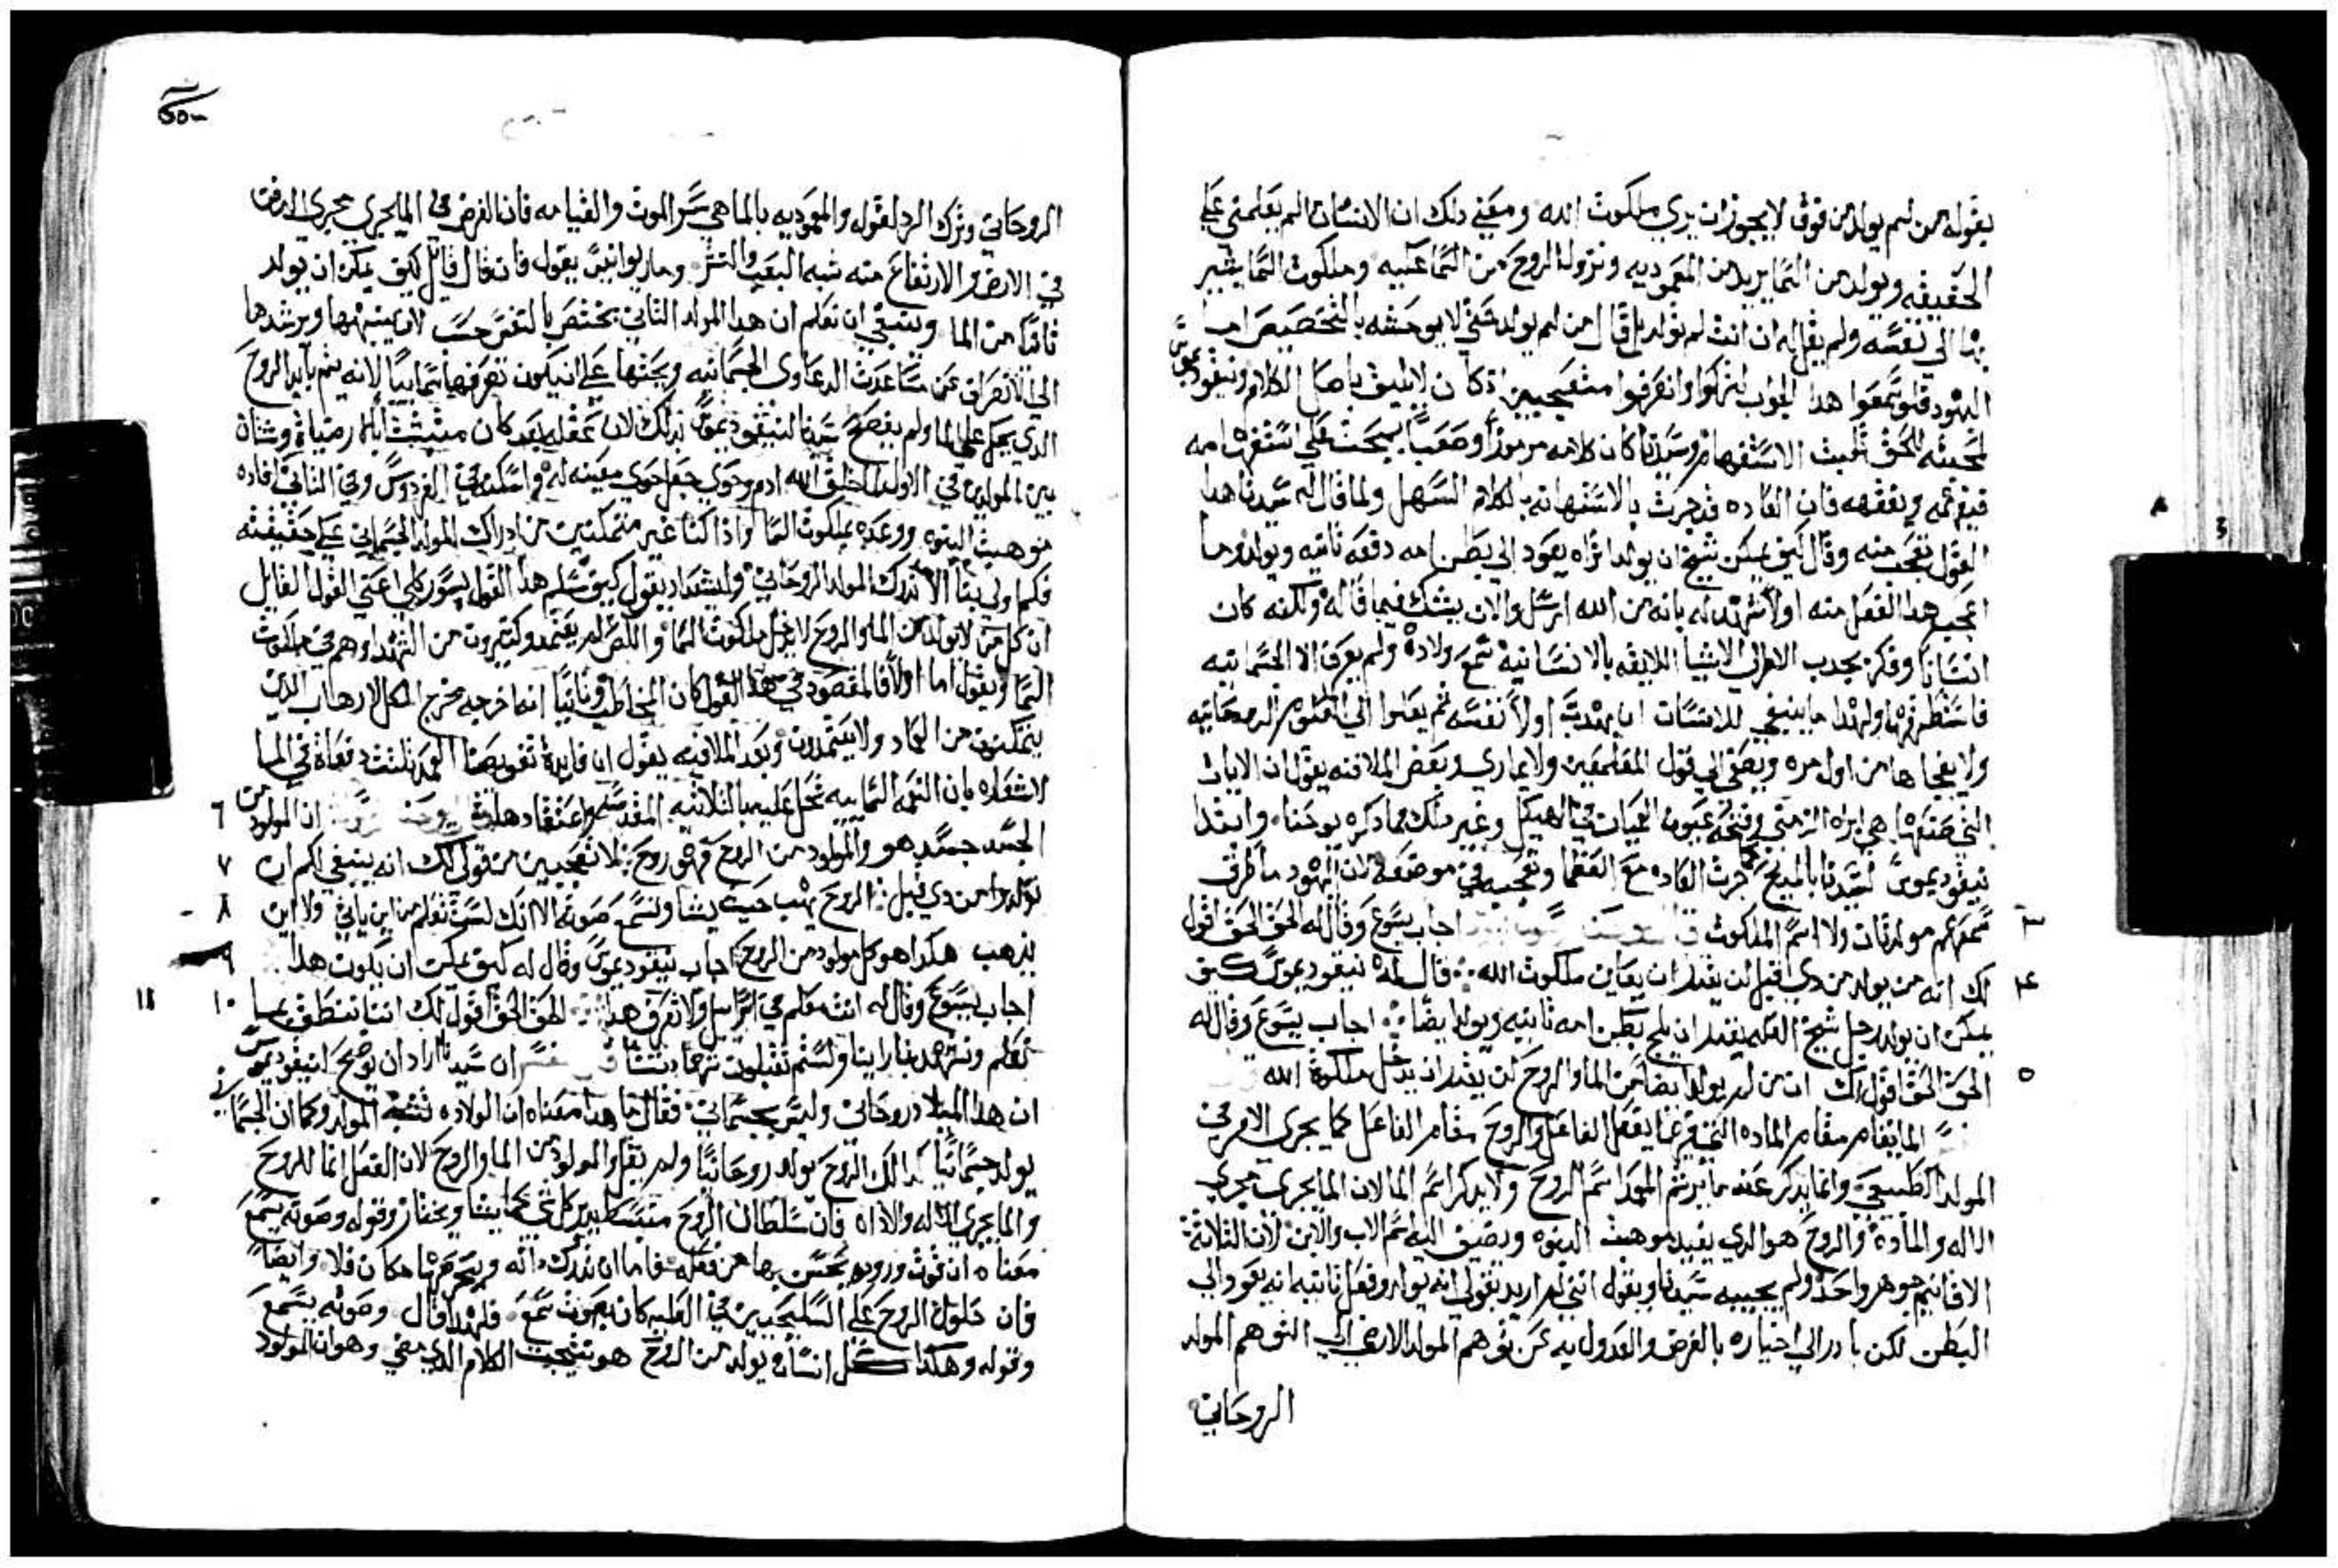 بقوله من لم يولد من فوق لا يجوز ان يري ملكوت الله ومعني دلك ان الانسان ادا لم يعلمني علي
الحقيقه ويولد من السما يريد من المعموديه ونزول الروح من السما عليه وملكوت السما يشير
بدا الي نفسه ولم يقل له ان انت لم تولد بل قال من لم يولد حتي لا يوحشه بالتخصيص اما
اليهود فلو سمعوا هدا الجواب لتركوا وانصرفوا متعجبين اذ كان لا يليق باهل الكلام ونيقوديموس
لمحبته للحق تلبث الاستفهام وسيدنا كان كلامه مرموزاً وصعباً ليبحث علي استفهامه
فيفهمه ويفقهه فان العاده قد جرت بالاستهانه بالكلام السهل ولما قال له سيدنا هدا
القول تعجب منه وقال كيف يمكن شيخ ان يولد اتراه يعود الي بطن امه دفعه ثانيه ويولد وما
اعجب هدا الفعل منه اولاً شهد له بانه من الله ارسل والان يشك فيما قاله ولكنه كان
انساناً وفكره يجدب الامر الي الاشيا اللايقه بالانسانيه سمع ولادة ولم يعرف الا الجسمانيه
فاستظهرها ولهدا ما ينبغي للانسان ان يهدب اولاً نفسه ثم يعلوا الي العلوم الروحانيه
ولا يفجاها من اول مره ويصغي الي قول المعلمين ولا يماري وبعض الملافنه يقول ان الايات
التي صنعها هي ابراه الزمني وفتحه عيون العميان في الهيكل وغير دلك مما ذكره يوحنا وابتدا
نيقوديموس لسيدنا بالمديح كما جرت العاده مع العظما وتعجبه في موضعه لان اليهود ما طرق
سمعهم مولد ثان ولا اسم الملكوت اجاب يسوع وقال له الحق الحق اقول
٣
لك انه من يولد من دي قبل لن يقدر ان يعاين ملكوت الله قال له نيقوديموس كيف
٤
يمكن ان يولد رجل شيخ العله يقدر ان يلج بطن امه ثانيه ويولد ايضاً اجاب يسوع وقال له
الحق الحق اقول لك ان من لم يولد ايضاً من الما والروح لن يقدر ان يدخل ملكوة الله
٥
الما يقام مقام الماده التي فيها يفعل الفاعل والروح مقام الفاعل كما يجري الامر في
المولد الطبيعي وانما يدكر عند ما يرشم المعمد اسم الروح ولا يدكر اسم الما لان الما يجري مجري
الاله والمادة والروح هو الدي يفيد موهبت البنوه ويضيف اليه اسم الاب والابن لان الثلاثة
الاقانيم جوهر واحد ولم يجيبه سيدنا ويقوله انني لم اريد بقولي انه يولد دفعه ثانيه انه يعود الي
البطن لكن بادر الي اخباره بالغرض والعدول به عن توهم المولد الارضي الي التوهم المولد
الروحاني
الروحاني وترك الرد لقوله والمعوديه بالما هي سر الموت والقيامه فان الغرض في الما يجري مجري الدفن
في الارض والارتفاع منه شبه البعث والنشر وماريوانيس يقول فان قال قايل كيف يمكن ان يولد
ثانياً من الما وينبغي ان نعلم ان هدا المولد الثاني يختص بالنفس حسب لان ينبهها ويرشدها
الي الانصراف عن مساعدت الدعاوي الجسمانيه ويحثها علي ان يكون تصرفها سمائياً لانه يتم بتاييد الروح
الدي يحل علي الما ولم يفصح سيدنا لنيقوديموس بدلك لان عقله بعد كان متشبث بالارضيات وشتان
بين المولدين في الاول لما خلق الله ادم وحوي جعل حوي معينه له واسكنه في الفردوس وفي الثاني افاده
موهبت البنوه ووعده بملكوت السما واذا كنا غير متمكنين من ادراك المولد الجسماني علي حقيقته
فكم اولي بنا الا ندرك المولد الروحاني وليشعداد يقول كيف سلم هذا القول بسور كلي اعني القول القايل
ان كل من لا يولد من الما والروح لا يدخل ملكوت السما واللص لم يعتمد وكثيرون من الشهدا وهم في ملكوت
السما ونقول اما اولاً فالمقصود في هذا القول كان المخاطب وثانياً انما اخرجه مخرج الكل لارهاب الدين
يتمكنون من العماد ولا يعتمدون وبعد الملافنه يقول ان فايدة تغويصنا المعمد ثلثت دفعاة في الما
لاشعاره بان النعمه السماييه تحل عليه بالثلاثيه المقدسه واعتقاد ان المولود من
٦
الجسد جسد هو والمولود من الروح فهو روح لا تعجبين من قولي لك انه ينبغي لكم ان
٧
تولدوا من دي قبل الروح يهب حيث يشا وتسمع صوته الا انك لست تعلم من اين ياتي ولا اين
٨
يذهب هكذا هو كل مولود من الروح اجاب نيقوديموس وقال له كيف يمكن ان يكون هدا
٩
اجاب يسوع وقال له انت معلم في اسراييل ولا تعرف هدا الحق الحق اقول لك اننا ننطق بما
١٠ ١١
نعلم ونشهد بما راينا ولستم تقبلون شهادتنا ان سيدنا اراد ان يوضح لنيقوديموس
ان هذا الميلاد روحاني وليس بجسماني فقال ما هدا معناه ان الولاده تشبه المولد وكما ان الجسماني
يولد جسمانياً كدالك الروح يولد روحانياً ولم يقل والمولود من الما والروح لان الفعل انما للروح
والما يجري كالاله والاداه فان سلطان الروح متبسط يدير كل شي كما يشا ويختار وقوله وصوته يسمع
معناه ان قوته وروحه يحس بها من فعله فاما ان ندرك داته ويحصرها مكان فلا وايضاً
فان حلول الروح علي السليحيين في العليه كان بصوت سمع فلهدا قال وصوته يسمع
وقوله وهكذا كل انسان يولد من الروح هو نتيجت الكلام الدي مضي وهو ان المولود